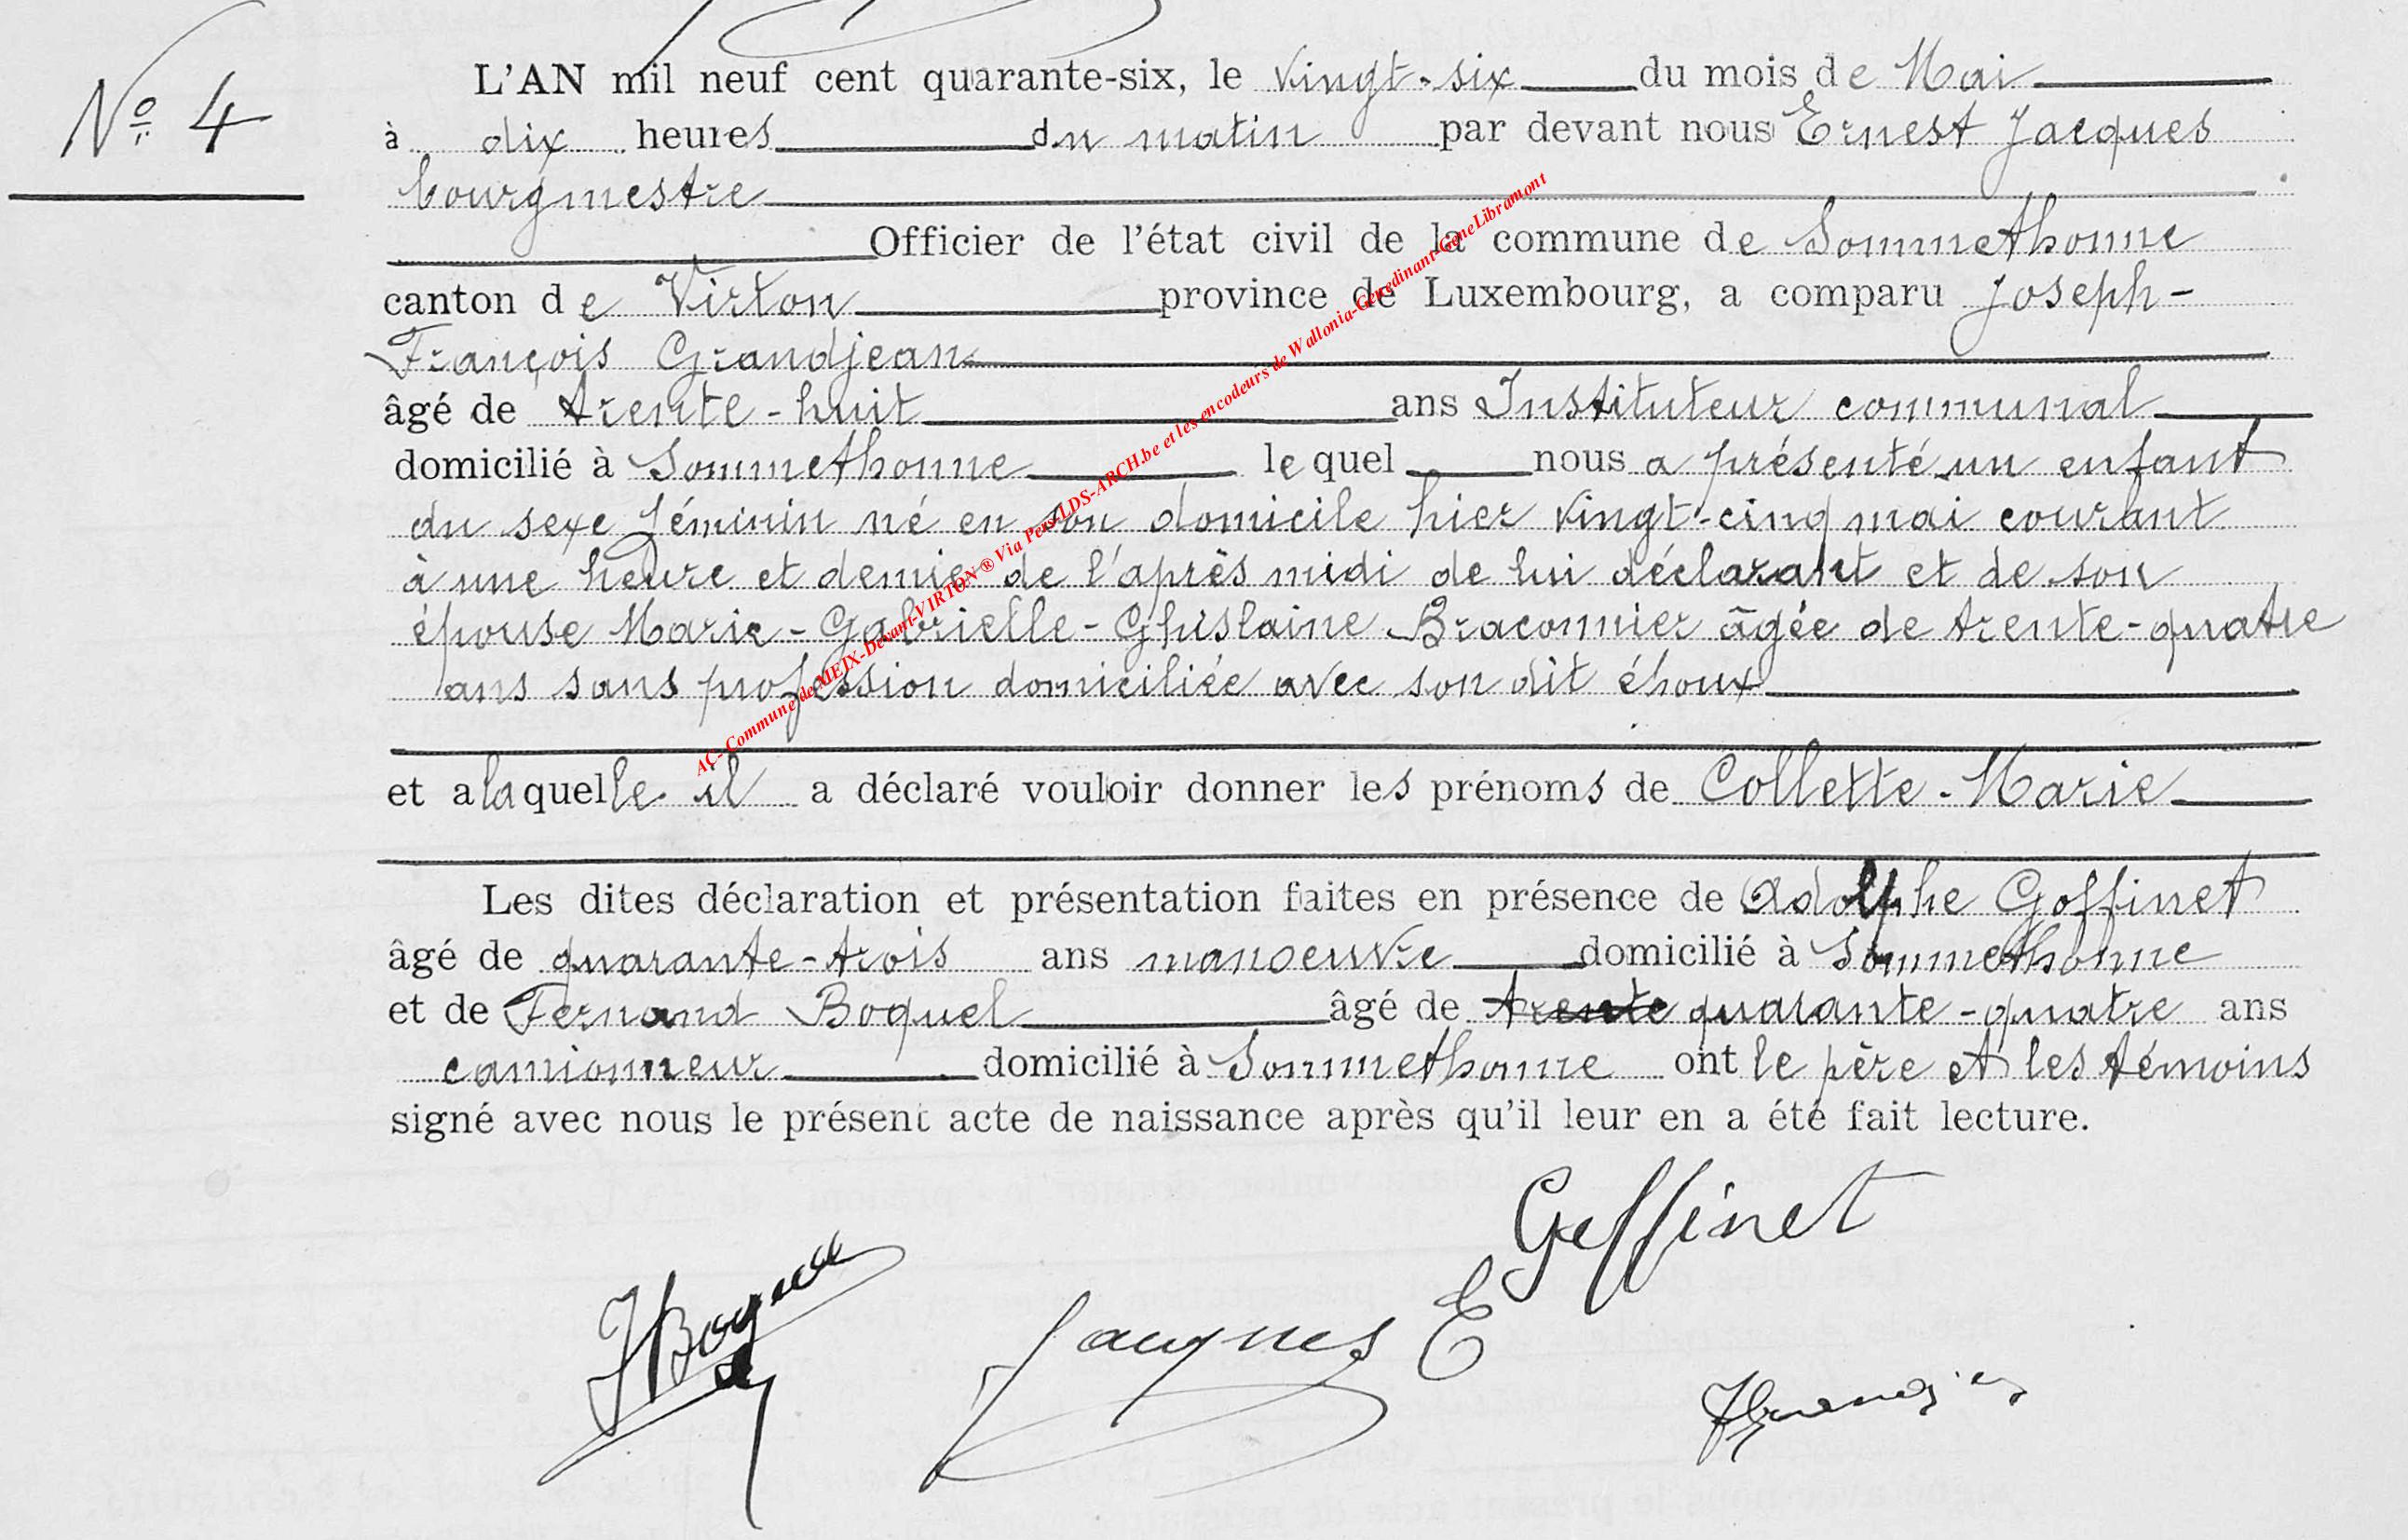 Nº 4
L'AN mil neuf cent quarante-six, le vingt-six du mois de Mai
à dix heures du matin par devant nous Ernest Jacques
bourgmestre
Officier de l'état civil de la commune de Sommethonne
canton de Virton province de Luxembourg, a comparu Joseph-
François Grandjean
âgé de trente-huit ans Instituteur communal
domicilié à Sommethonne lequel nous a présenté un enfant
du sexe féminin né en son domicile hier vingt-cinq mai courant
à une heure et demie de l'après midi de lui déclarant et de son
épouse Marie-Gabrielle-Ghislaine Braconnier âgée de trente-quatre
ans sans profession domiciliée avec son dit époux
et a laquelle il a déclaré vouloir donner les prénoms de Collette-Marie
Les dites déclaration et présentation faites en présence de Adolphe Goffinet
âgé de quarante-trois ans manoeuvre domicilié à Sommethonne
et de Fernand Boquel âgé de trente quarante-quatre ans
camionneur domicilié à Sommethonne ont le père et les témoins
signé avec nous le présent acte de naissance après qu'il leur en a été fait lecture.
Goffinet
FBoquel
Jacques E
AC- Commune de MEIX-Devant-VIRTON ® Via Pers-LDS-ARCH.be et les encodeurs de Wallonia-Genedinant-GeneLibramont